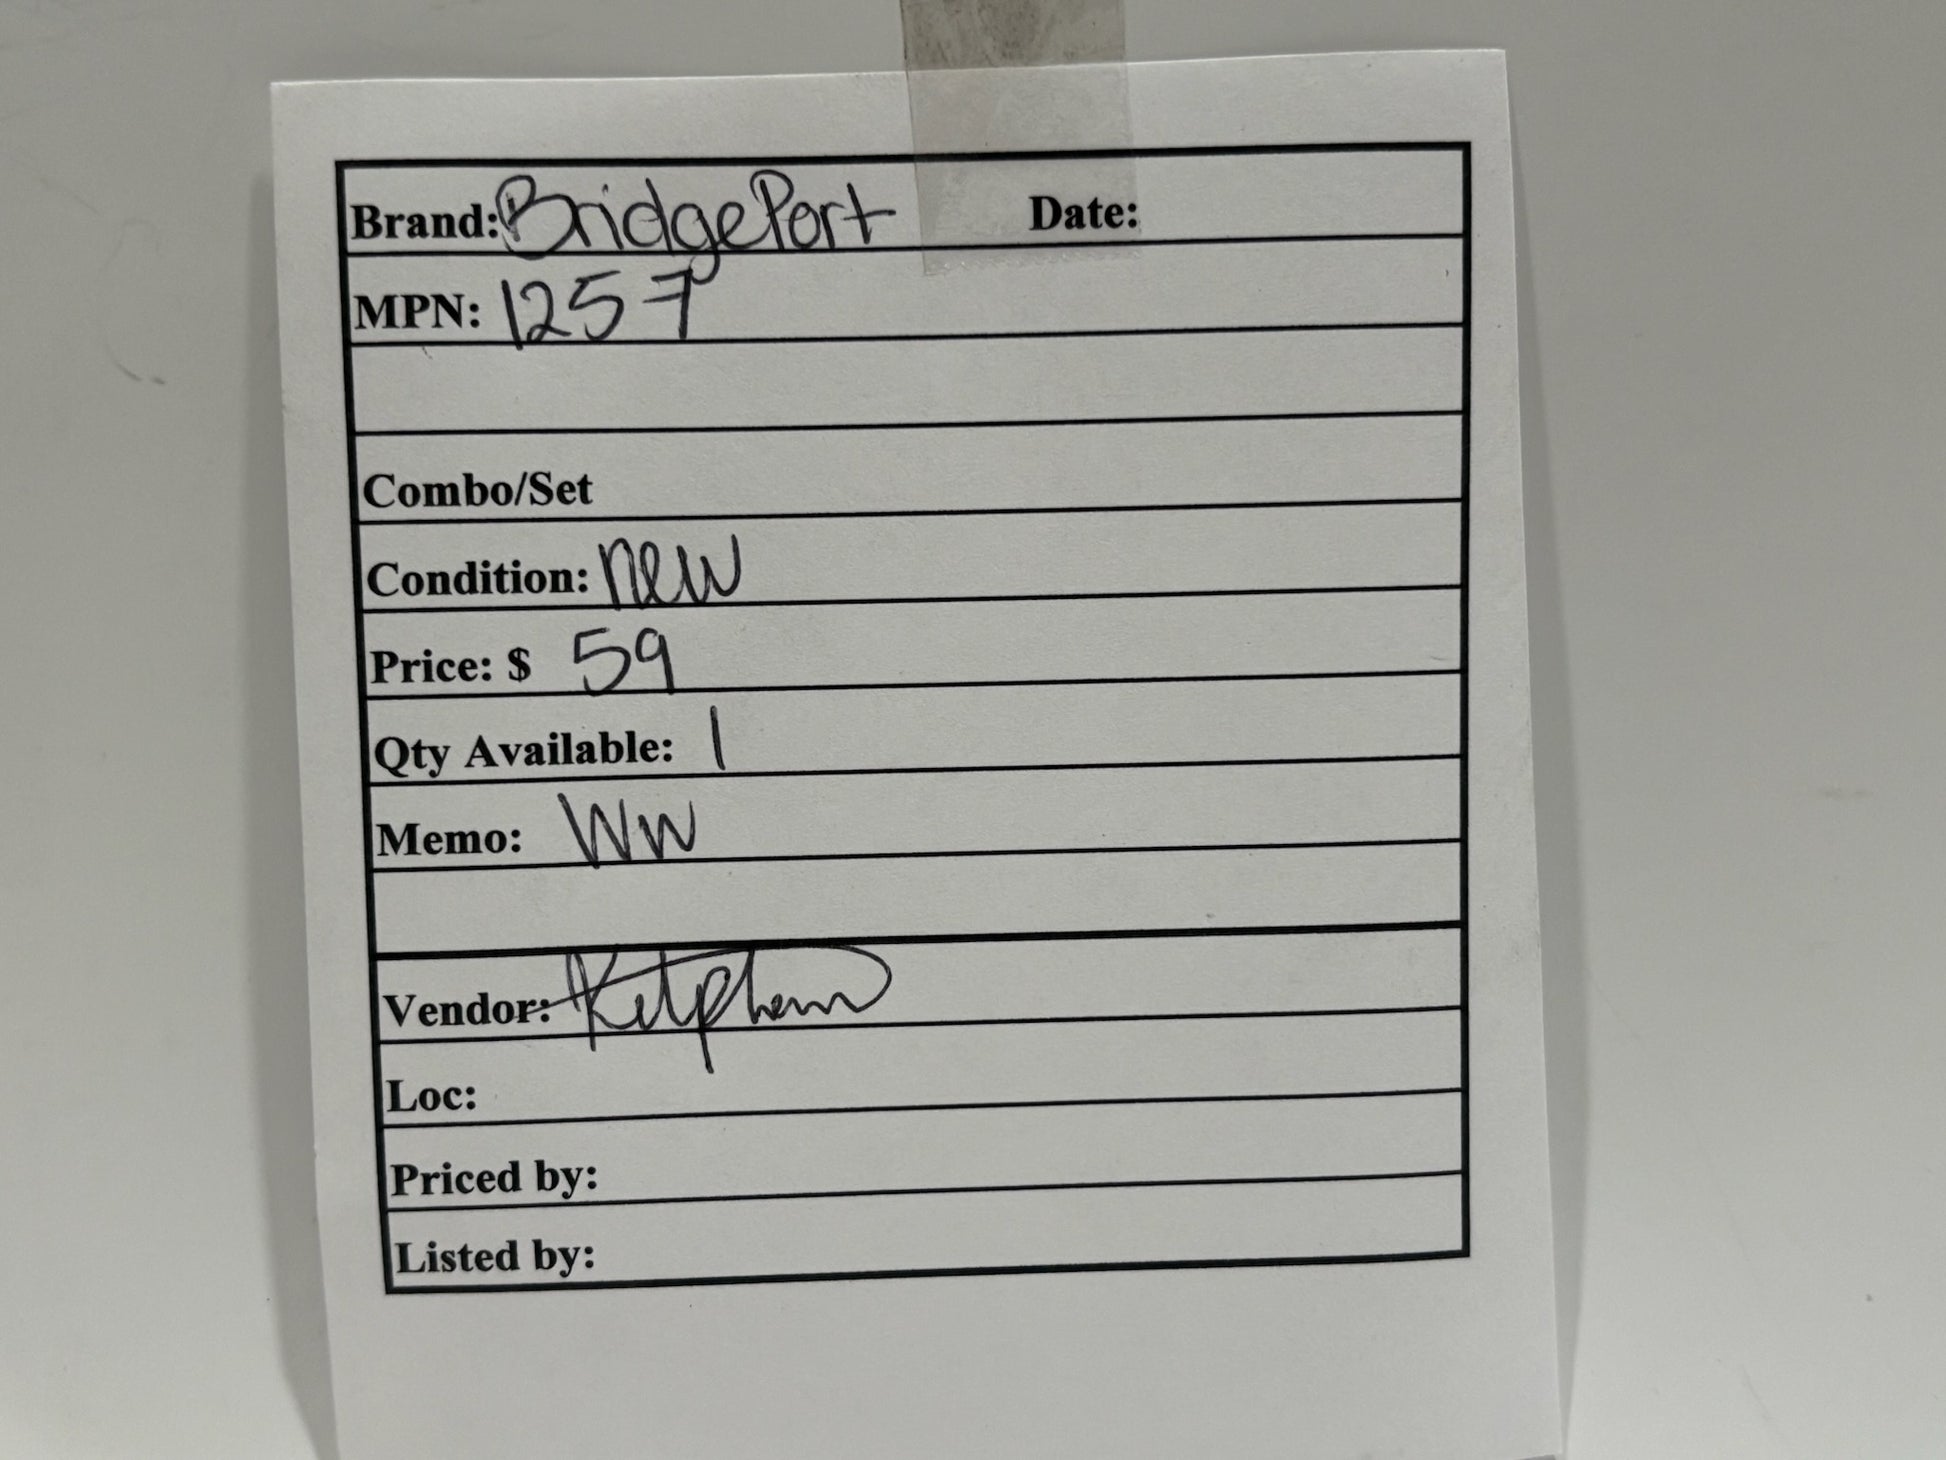 Brand: BridgePort Date:
MPN: 1257
Combo/Set
Condition: new
Price: $ 59
Qty Available: 1
Memo: WW
Vendor:
Loc:
Priced by:
Listed by: